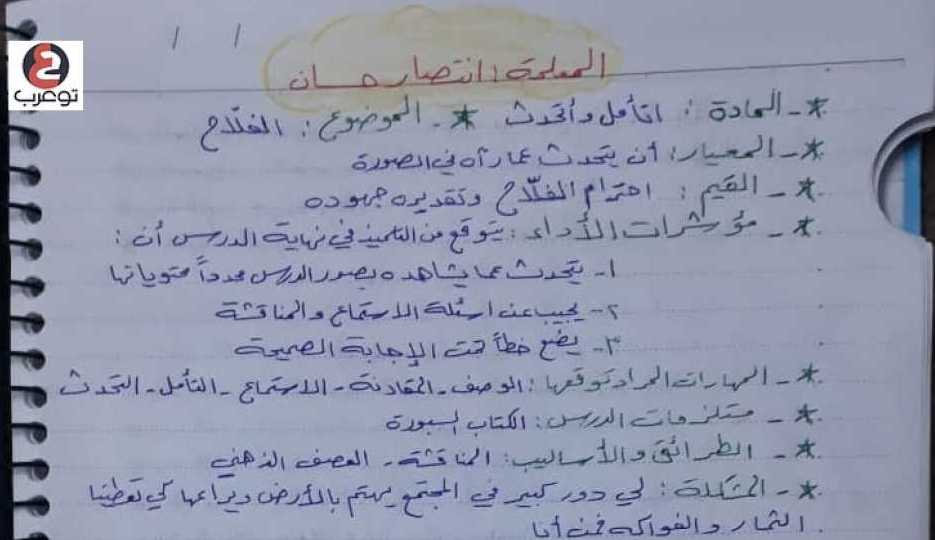 توعرب
المعلمة: انتصار حسان
*- المادة: اتأمل وأتحدث *- الموضوع: الفلّاح
*- المعيار: أن يتحدث عما رآه في الصورة
*- القيم: احترام الفلّاح وتقديره جهوده
*- مؤشرات الأداء: يتوقع من التلميذ في نهاية الدرس أن:
١- يتحدث عما يشاهده بصور الدرس محدداً محتوياتها
٢- يجيب عن اسئلة الاستماع والمناقشة
٣- يضع خطاً تحت الإجابة الصحيحة
*- المهارات المراد توقعها: الوصف - المقارنة - الاستماع - التأمل - التحدث
*- مستلزمات الدرس: الكتاب السبورة
*- الطرائق والأساليب: المناقشة - العصف الذهني
*- المشكلة: لي دور كبير في المجتمع يهتم بالأرض ويراعها كي تعطينا
الثمار والفواكه فمن أنا